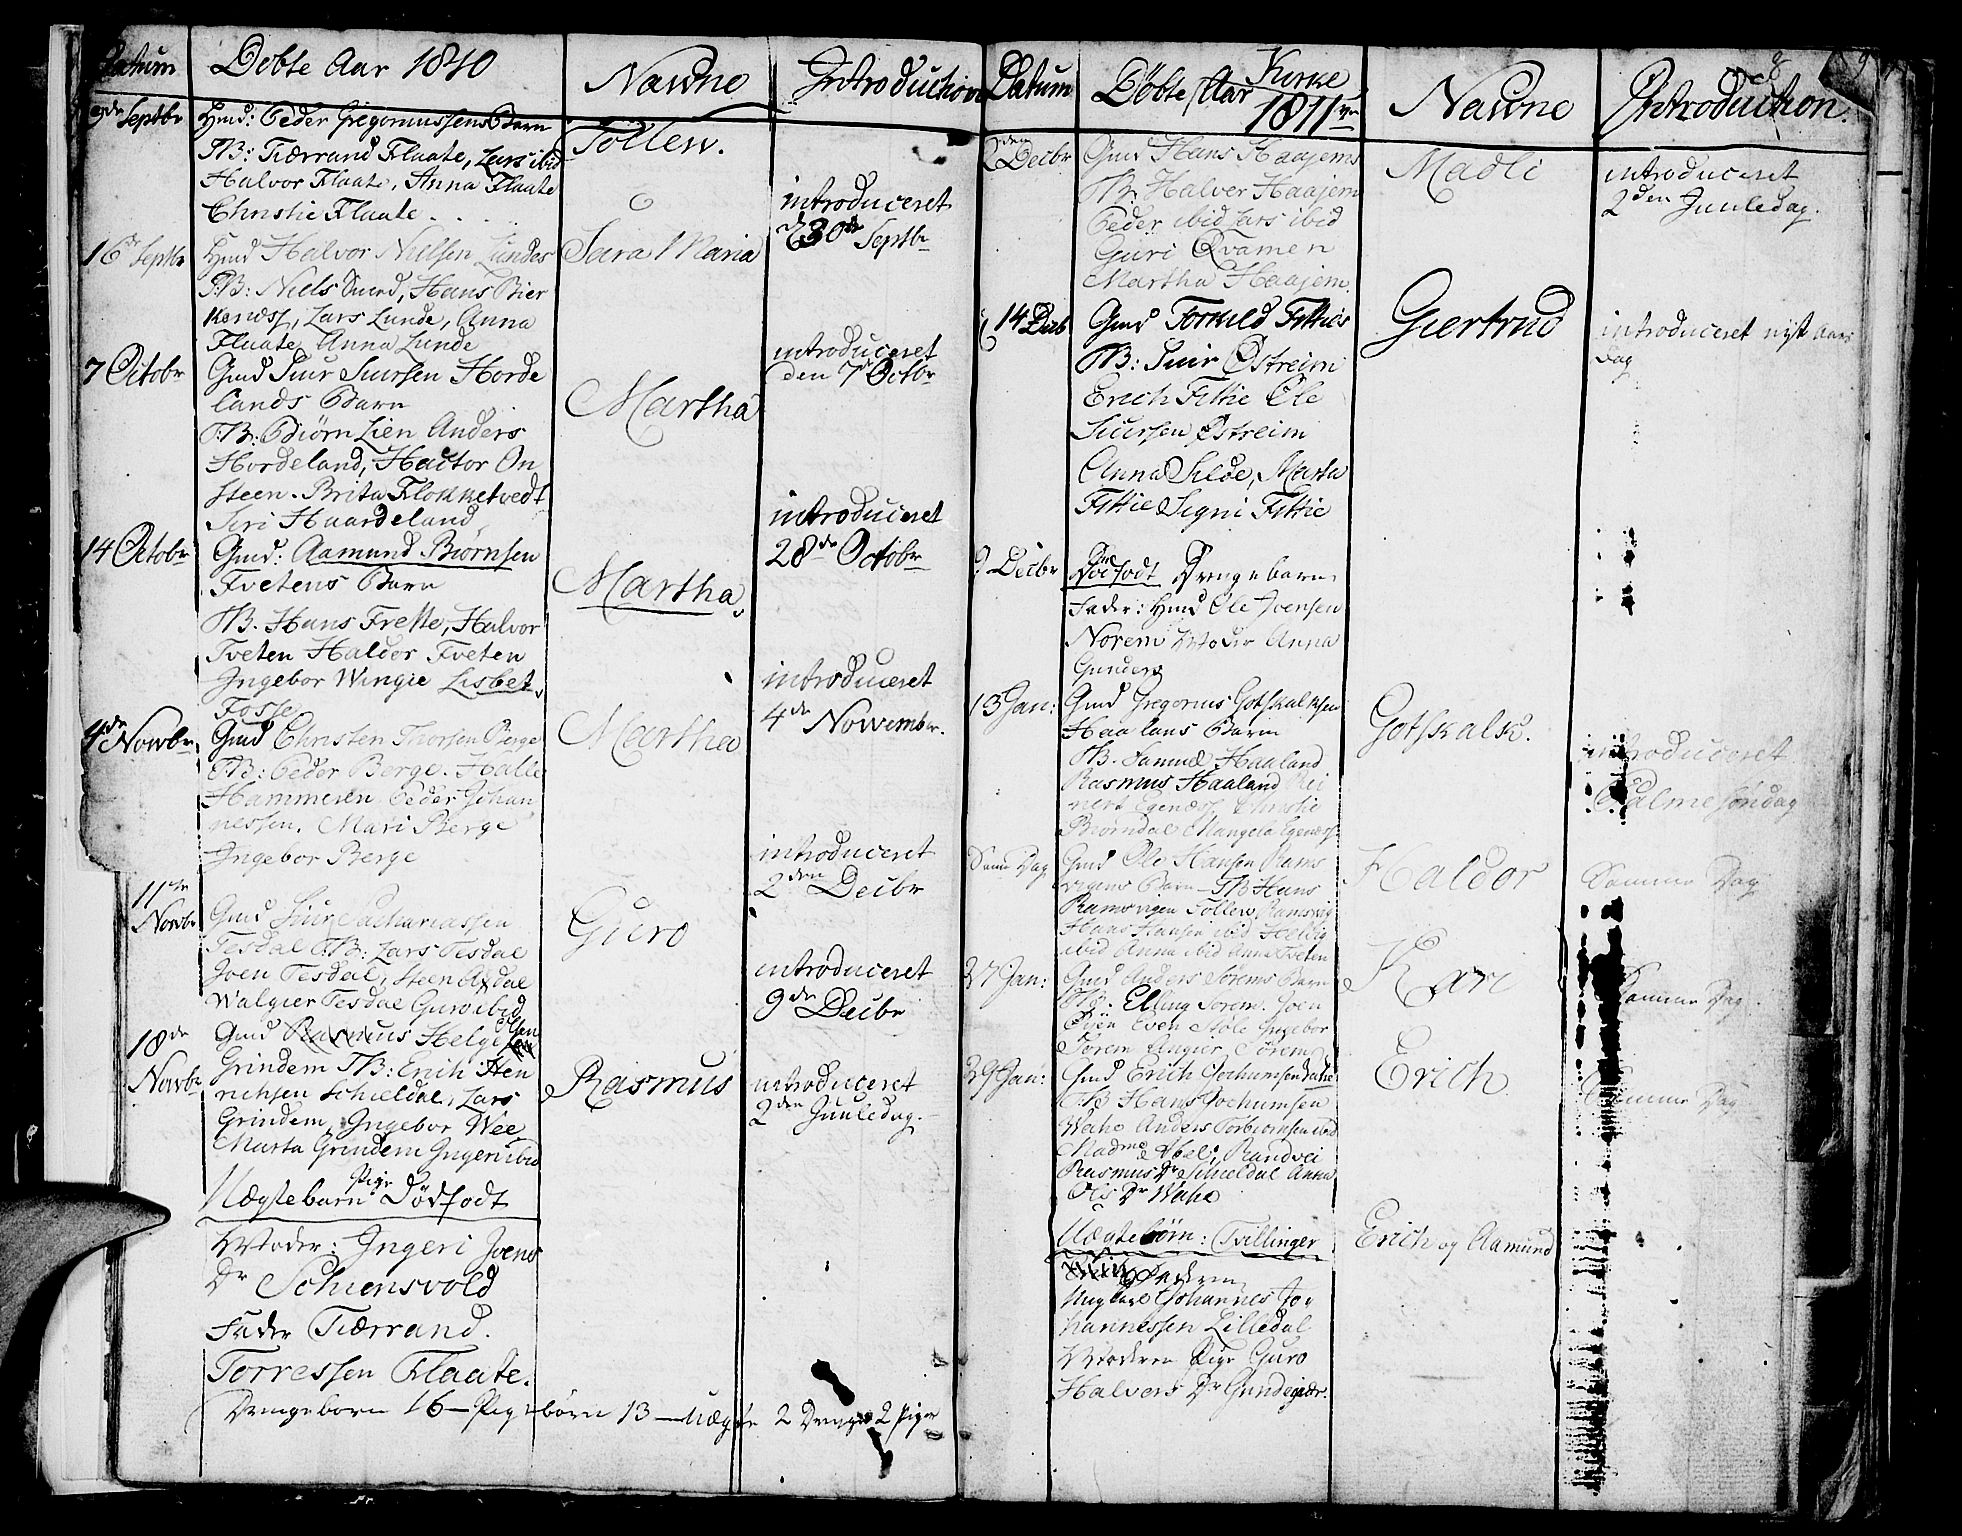 Datum
Döbte Aar 1810
Nawne
Introduction
9de Septbr
Gmd: Peder Gregoriussens Barn
TB: Tiærrand Flaate, Lars ibid
Halvor Flaate, Anna Flaate
Christie Flaate.
Tollew.
introduceret
d 30de Septbr
16de Septbr
Gmd Halvor Nielsen Lundes
TB: Niels Smed, Hans Bier
kenæss, Lars Lunde, Anna
Flaate, Anna Lunde
Sara Maria
introduceret
den 7de Octbr
7 Octobr
Gmd Siur Siursen Horde
lands Barn
TB: Biørn Lien Anders
Hordeland, Hactor On
steen. Brita Flokketvedt
Siri Haardeland
Martha
introduceret
28de Octobr
14 Octobr
Gmd: Aamund Biørnsen
Tvetens Barn
TB. Hans Frette, Halvor
Tveten Haldor Tveten
Ingebor Wingie Lisbet
Fosse
Martha
introduceret
4de Nowembr.
4de Nowbr
Gmd Christen Thorsen Berge
TB: Peder Berge. Halle
Hammeren Peder Johan
nessen. Mari Berge
Ingebor Berge
Martha
introduceret
2den Decbr
11te
Nowbr
Gmd Siur Sachariassen
Tesdal TB: Lars Tesdal
Joen Tesdal, Steen Axdal
Walgier Tesdal Guro ibid
Guro
introduceret
9de Decbr
18de
Nowbr
Gmd Rasmus Helge Olsen
Grindem TB: Erich Hen
richsen Schieldal, Lars
Grindem, Ingebor Wee
Marta Grindem Ingeri ibid
Rasmus
introduceret
2den Juuledag.
Uægtebarn Pige Dödfödt
Moder: Ingeri Joens
Dr Schiensvold
Fader Tiærrand
Torressen Flaate.
Drengebørn 16 — Pigebørn 13 — Uægte 2 Drenge 2 Piger
Datum
Döbte Aar Kirke
1811
Nawne
Introduction.
8
9
2den Decbr
Gmd Hans Haajems
TB. Halver Haajem
Peder ibid Lars ibid
Guri Qvamen
Martha Haajem.
Madli
introduceret
2den Juuledag.
14 Decb
Gmd Torkild Fitties
TB: Siur Østreim
Erich Fittie Ole
Siursen Østreim
Anna Silde, Marta
Fittie Signi Fittie
Giertrud
introduceret nyt Aars
Dag
9 Decbr
Dödfödt Drengebarn
Fader: Gmd Ole Joensen
Norem Moder Anna
Gunders
13 Jan:
Gmd Gregorius Gotskalksen
Haalans Barn
TB. Samuel Haaland
Rasmus Haaland Rei
nert Egenæss Christie
Biørndal Mangela Egenæss
Gotskalk.
introduceret
Palmesøndag
Samme Dag
Gmd Ole Hansen Rams
vigens Barn TB Hans
Ramsvigen Tollew Ramsvig
Hans Hansen ibid Helvig
ibid Anna ibid Anna Tveten
Haldor
Samme Dag
27 Jan:
Gmd Anders Sørems Barn
TB. Elling Sørem. Joen
Øien Even Støle Ingebor
Sørem Angier Sørem
Kari
Samme Dag.
29 Jan:
Gmd Erich Jochumsen Wahe
TB Hans Jochumsen
Wahe Anders Torbiørnsen ibid
Madme Abel, Randvei
Rasmus Dr Schieldal Anna
Ols Dr Wahe
Erich
Samme Dag
Uægtebörn: Tvillinger
Faderen
Ungkarl Johannes Jo
hannessen Liliedal
Moderen Pige Guro
Halvers Dr Gundegier.
Erich og Aamund